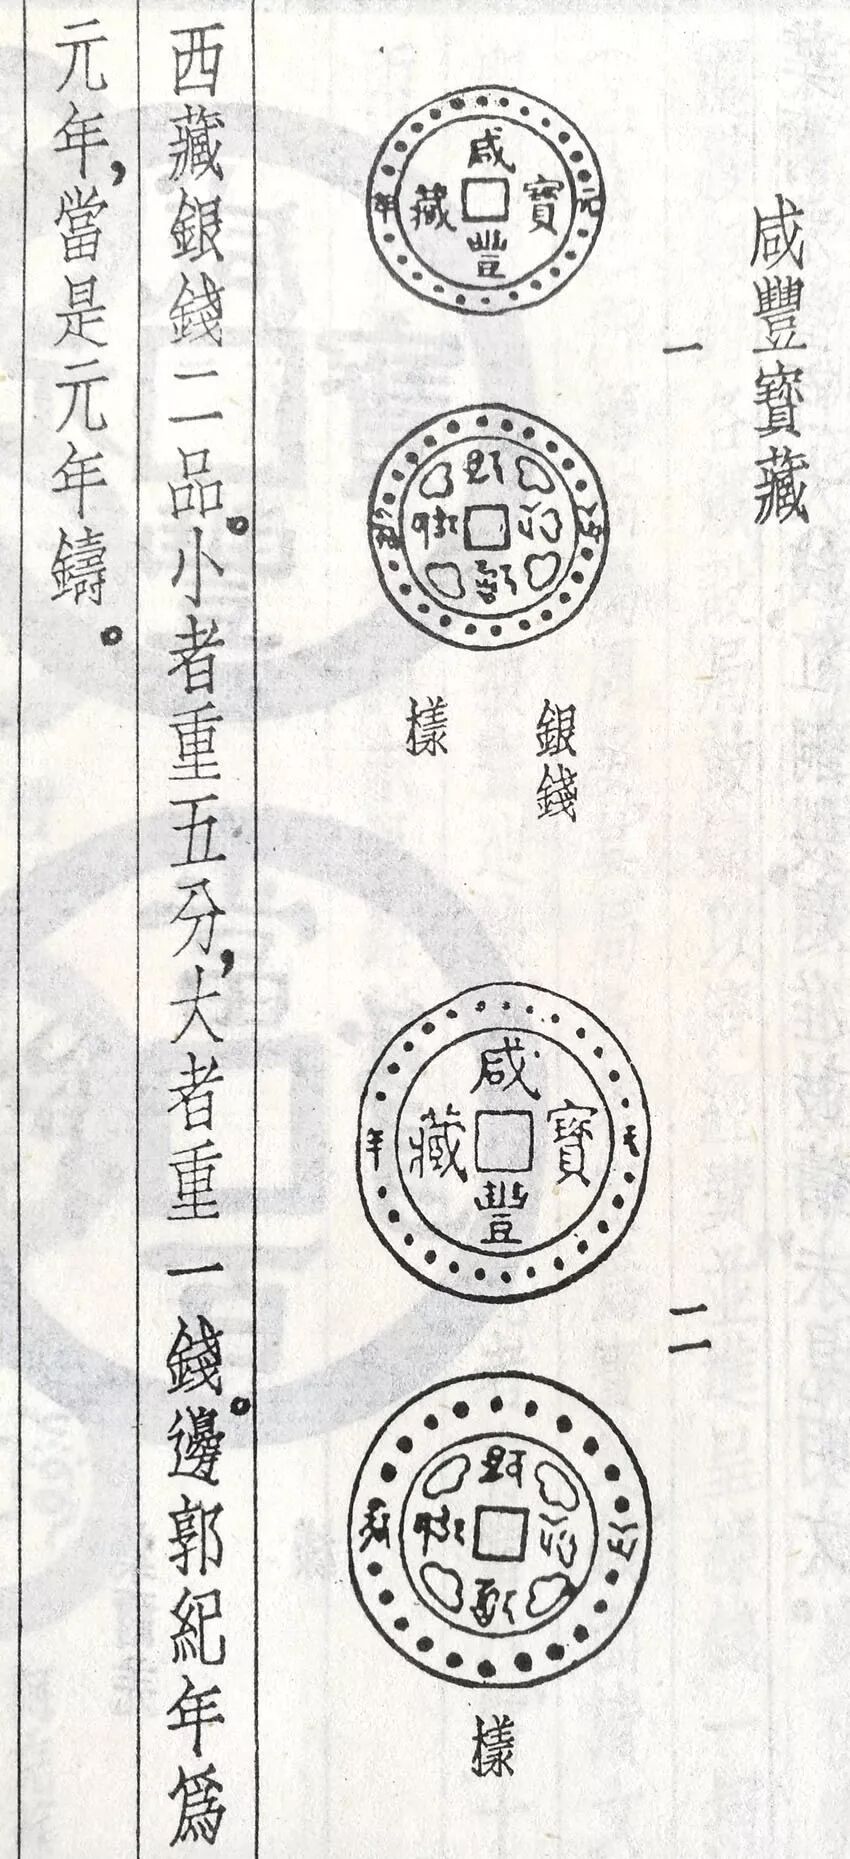 咸豐寶藏
一
咸豐寶藏
元年
銀錢
樣
二
咸豐寶藏
元年
樣
西藏銀錢二品。小者重五分，大者重一錢。邊郭紀年爲
元年，當是元年鑄。